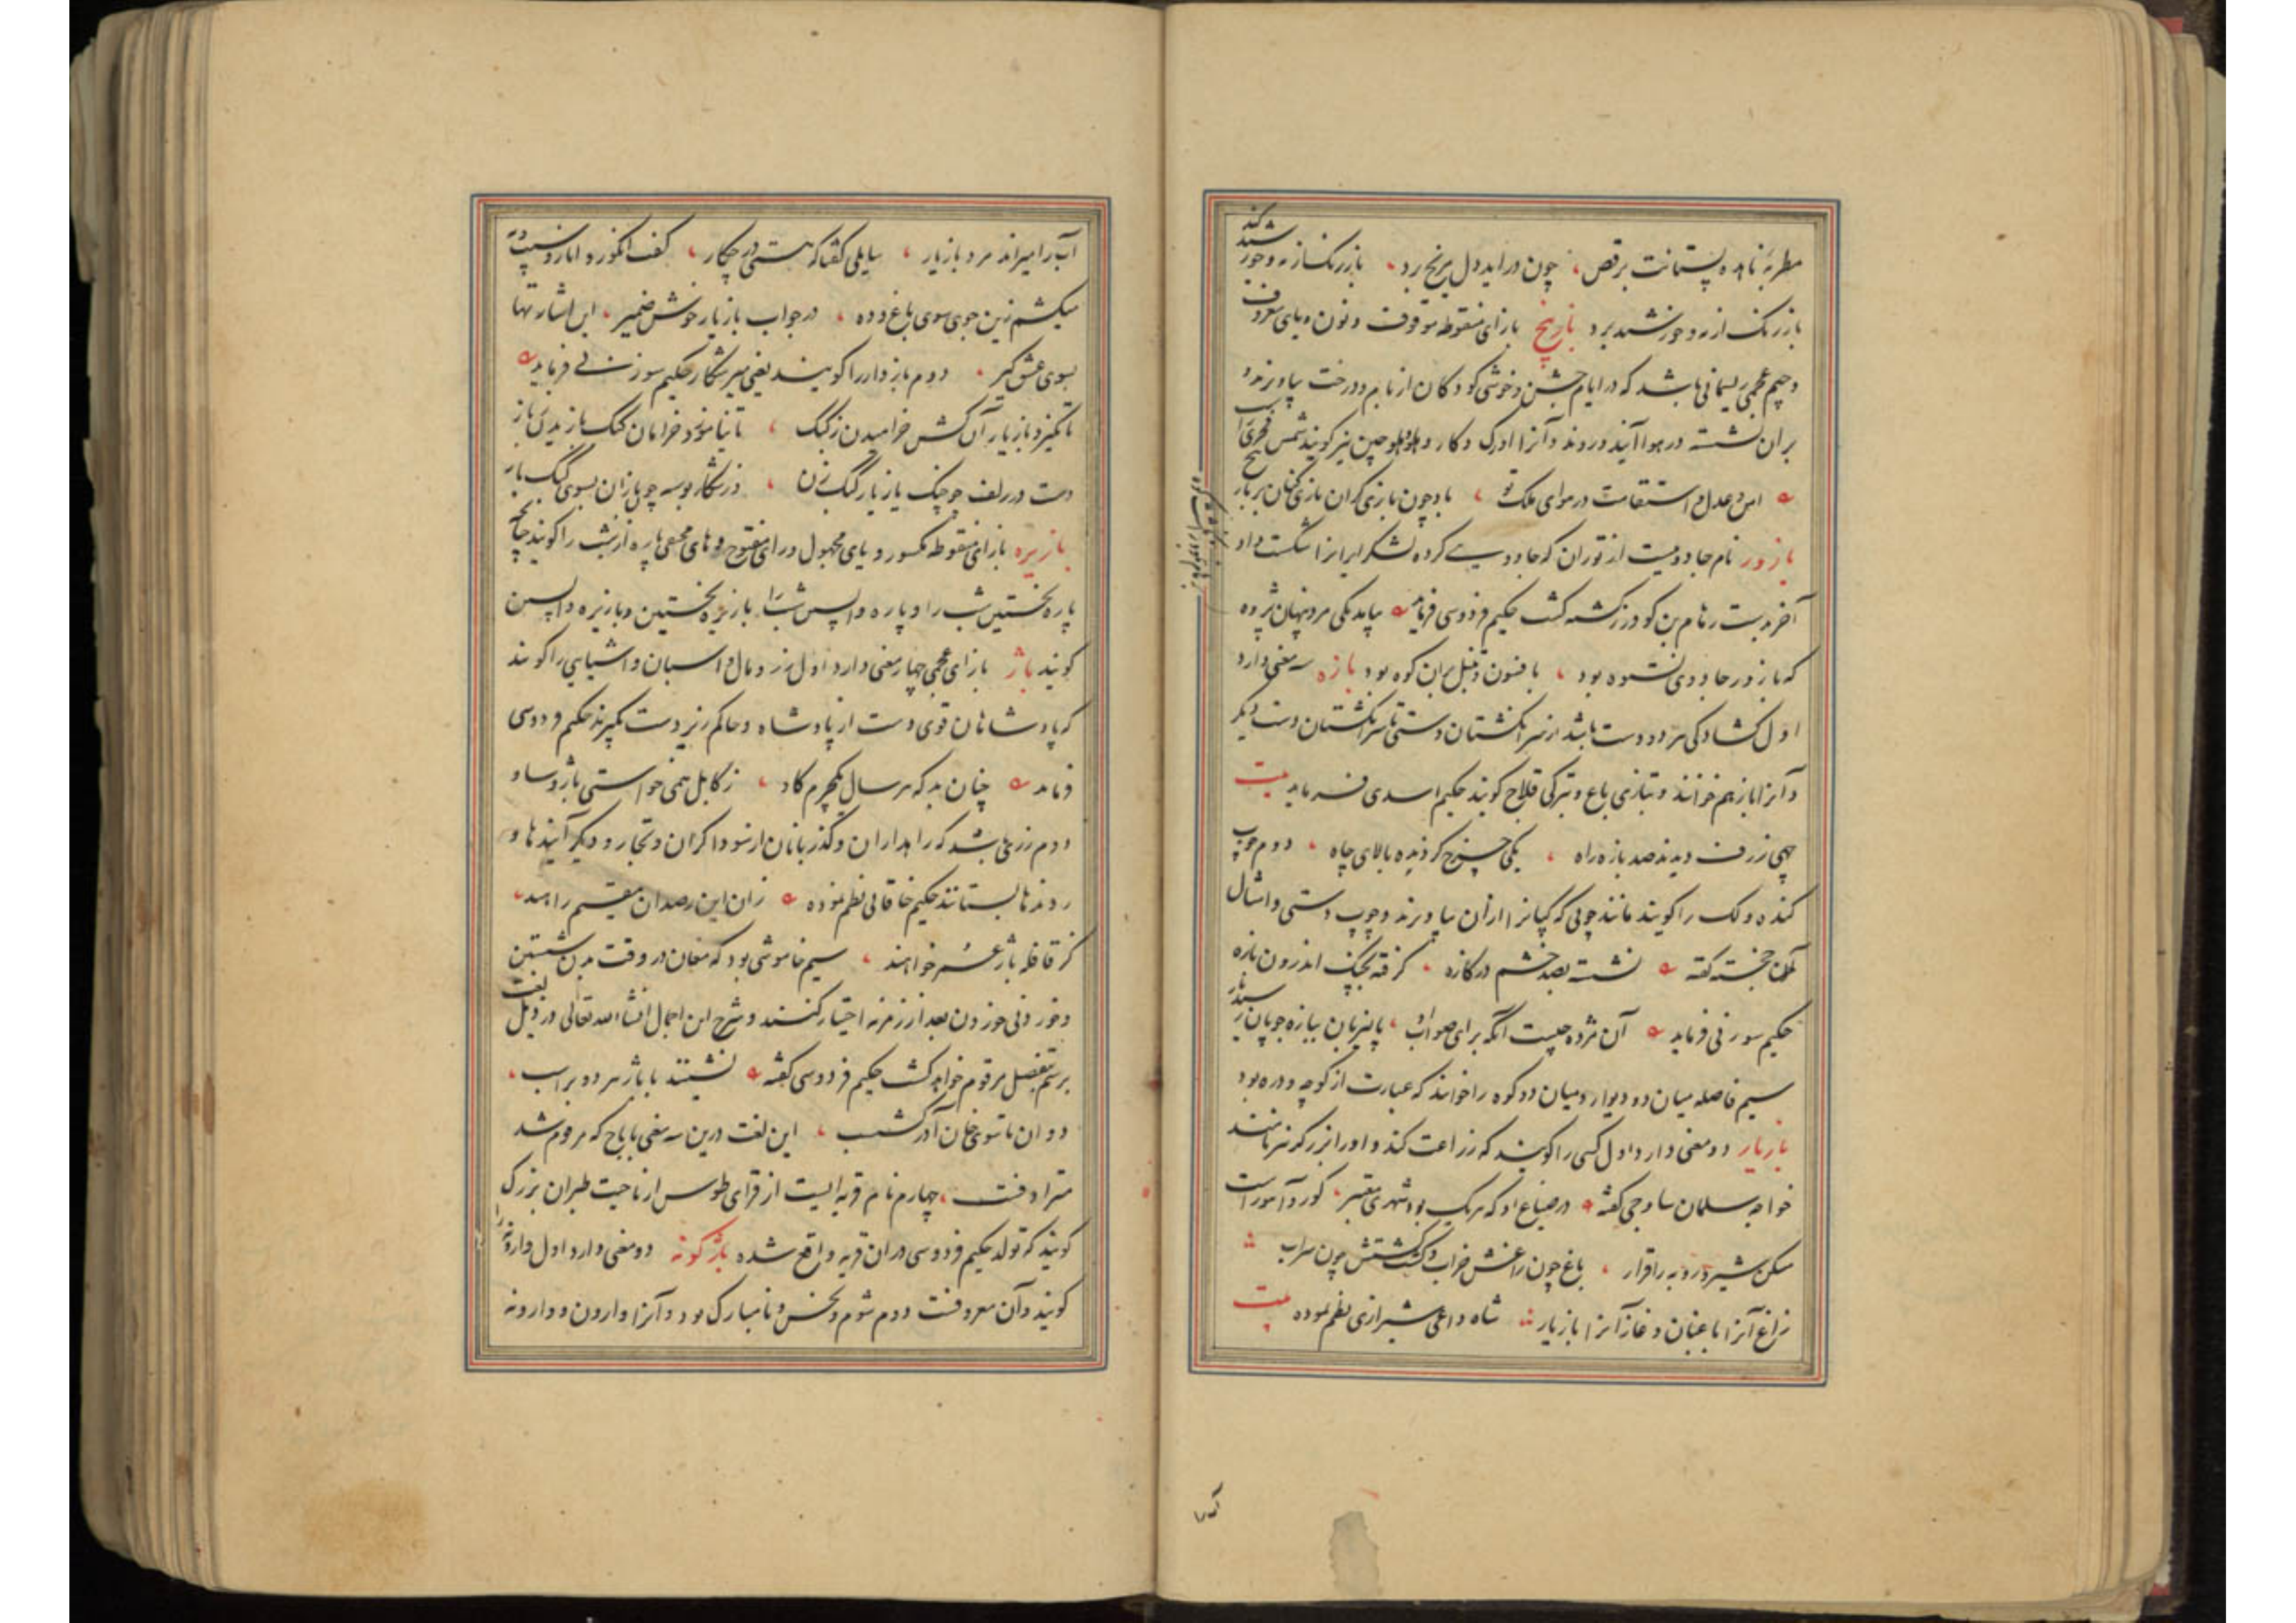 مطربهٔ ناهده پستانت برقص، چون دراید دل مریخ برد، بازرنک از مه و خورشید کند
بازرنک از مه و خورشید برد بازپیچ بازای منقوطه موقوف و نون و یای معروف
و جیم عجمی ریسمانی باشد که در ایام جشن و خوشی کودکان از بام و درخت بیاویزند و
بران نشسته در هوا آیند و روند و آنرا اورک و کار و هلوچین نیز کویند شمس فخری
امن و عدل و استقامت در سرای ملک تو، باد چون بازی کران بازی کنان بر باز
بازور نام جادوییست از توران که جادویی کرده لشکر ایرانرا شکست داد
آخر بدست رهام بن کودرز کشته کشت حکیم فردوسی فرماید بیامد یکی مرد پنهان پژوه
که بازور جادوی نستوه بود، بافسون و تنبل بران کوه بود بازه سه معنی دارد
اول کشادکی هر دو دست باشد از سر انکشتان دستی تا سر انکشتان دست دیکر
و آنرا باز هم خوانند و بتازی باع و بترکی قلاج کویند حکیم اسدی فرماید بیت
چهی ژرف دیدند صد بازه راه، یکی چرخ کردنده بالای چاه، دوم چوب
کنده و لک را کویند مانند چوبی که کپانرا ازان بیاویزند و چوب دستی و امثال
آن خجسته کفته نشسته بصد خشم در کازه، کرفته بچنک اندرون بازه
حکیم سوزنی فرماید آن مژده چیست آنکه برای صواب، پالیزبان ببازه چوپان
سیم فاصله میان دو دیوار و میان دو کوه را خوانند که عبارت از کوچه و دره بود
بازیار دو معنی دارد اول کسی را کویند که زراعت کند و او را برزکر نیز نامند
خواجه سلمان ساوجی کفته در ضیاع او که هر یک بود شهری معتبر، کور و آهو راست
مسکن شیر و روبه را قرار، باغ چون راغش خراب و کشت کشتش چون سراب
زاغ آنرا باغبان و غاز آنرا بازیار شاه داعی شیرازی نظم نموده بیت
آب را میراند مرد بازیار، سایلی کفتا که هستی در چکار، کفت انکور و انار و
میکشم زین جوی سوی باغ و ده، در جواب بازیار خوش ضمیر، این اشارتها
بسوی عشق کیر، دوم بازدار را کویند یعنی میر شکار حکیم سوزنی فرماید
تا نکیرد بازیار آن کش خرامیدن ز کبک، تا نیاموزد خرامان کبک بازیدن باز
دست در زلف چو چنک بازیار کبک زن، در شکار بوسه چون بازان بسوی کبک یاز
بازیره بازای منقوطه مکسور و یای مجهول و رای مفتوح و های مخفی پاره از شب را کویند چنانچه
پاره نخستین شب را و پاره واپسین شب را بازیره نخستین و بازیره واپسین
کویند باژ بازای عجمی چهار معنی دارد اول زر و مال و اسبان و اشیایی را کویند
که پادشاهان قوی دست از پادشاه و حاکم زیردست بکیرند حکیم فردوسی
فرماید چنان بد که هر سال یک چرم کاو، ز کابل همی خواستی باژ و ساو
دوم زری باشد که راهداران و کذربانان از سوداکران و تجار و دیکر آیندها و
روندها بستانند حکیم خاقانی نظم نموده زان این رصدان مقیم راهند،
کز قافله باژ عمر خواهند، سیم خاموشی بود که مغان در وقت بدن شستن
و خوردنی خوردن بعد از زمزمه اختیار کنند و شرح این اجمال انشاءالله تعالی در ذیل لغت
برسم بتفصیل مرقوم خواهد کشت حکیم فردوسی کفته نشستند با باژ هر دو بر اسب،
دوان تا سوی خان آذرکشسب، این لغت درین سه معنی با باج که مرقوم شد
مترادفست، چهارم نام قریه ایست از قرای طوس از ناحیت طبران بزرک
کویند که تولد حکیم فردوسی دران قریه واقع شده باژکونه دو معنی دارد اول وارونه را
کویند و آن معروفست دوم شوم و نحس و نامبارک بود و آنرا وارون و وارونه